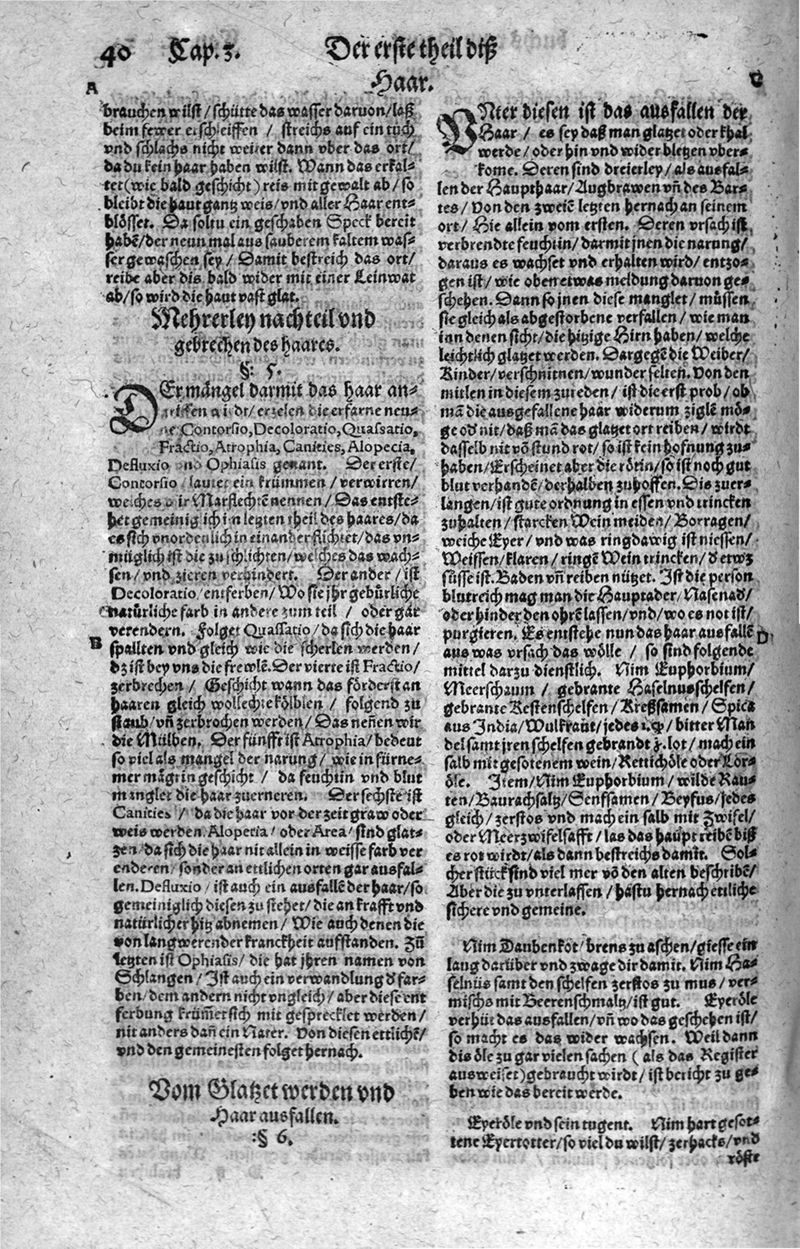 40 Cap. 3. Der erste theil diß
Haar.
A
brauchen wilst / schütte das wasser daruon / laß
beim fewer erschleiffen / streichs auf ein tuch
vnd schlachs nicht weiter dann vber das ort /
da du kein haar haben wilst. Wann das erkal-
tet (wie bald geschicht) reis mit gewalt ab / so
bleibt die haut gantz weis / vnd aller Haar ent-
blösset. Da soltu ein geschaben Speck bereit
habē / der neun mal aus sauberem kaltem was-
ser gewaschen sey / Damit bestreich das ort /
reibe aber dis bald wider mit einer Leinwat
ab / so wird die haut vast glat.
Mehrerley nachteil vnd
gebrechen des haares.
§. 5.
DEr mängel darmit das haar an-
griffen wirdt / erzelen die erfarne neu-
ne Contorsio, Decoloratio, Quassatio,
Fractio, Atrophia, Canities, Alopecia,
Defluxio vnd Ophiasis genant. Der erste /
Contorsio lautet ein krümmen / verwirren /
welches wir Marflechtē nennen / Das entste-
het gemeiniglich in letzten theil des haares / da
es sich vnordenlich in einander flichtet / das vn-
müglich ist die zu schlichten / welches das wach-
sen / vnd zieren verhindert. Der ander / ist
Decoloratio / entferben / Wo sie jhr gebürliche
natürliche farb in andere zum teil / oder gar
verendern. Folget Quassatio / da sich die haar
B
spallten vnd gleich wie die scherlen werden /
dz ist bey vns die frewlē. Der vierte ist Fractio /
zerbrechen / Geschicht wann das förderst an
haaren gleich wollechte kölblen / folgend zu
staub / vñ zerbrochen werden / Das neñen wir
die Mülben. Der fünfft ist Atrophia / bedeut
so viel als mangel der narung / wie in fürne-
mer mägrin geschicht / da feuchtin vnd blut
manglet die haar zuerneren. Der sechste ist
Canities / da die haar vor der zeit graw oder
weis werden. Alopecia / oder Area / sind glat-
zen / da sich die haar nit allein in weisse farb ver
enderen / sonder an ettlichen orten gar ausfal-
len. Defluxio / ist auch ein ausfallē der haar / so
gemeiniglich diesen zu stehet / die an krafft vnd
natürlicher hitz abnemen / Wie auch denen die
von langwerender kranckheit aufstanden. Zū
letzten ist Ophiasis / die hat jhren namen von
Schlangen / Ist auch ein verwandlung d' far-
ben / dem andern nicht vngleich / aber diese ent
ferbung krüm̄et sich mit gesprecklet werden /
nit anders dañ ein Nater. Von diesen ettlichē /
vnd den gemeinesten folget hernach.
Vom Glatzet werden vnd
Haar ausfallen.
§ 6.
C
VNter diesen ist das ausfallen der
Haar / es sey daß man glatzet oder khal
werde / oder hin vnd wider bletzen vber-
kome. Deren sind dreierley / als ausfal-
len der Haupthaar / Augbrawen vñ des Bar-
tes / Von den zweiē letzten hernach an seinem
ort / Hie allein vom ersten. Deren vrsach ist
verbrendte feuchtin / darmit jnen die narung /
daraus es wachset vnd erhalten wird / entzo-
gen ist / wie oben etwas meldung daruon ge-
schehen. Dann so jnen diese manglet / müssen
sie gleich als abgestorbene verfallen / wie man
inn denen sicht / die hitzige Hirn haben / welche
leichtlich glatzet werden. Dargegē die Weiber /
Kinder / verschnitnen / wunder selten. Von den
mitlen in diesem zu reden / ist die erst prob / ob
mā die ausgefallene haar widerum ziglē mö-
ge od' nit / daß mā das glatzet ort reiben / wirdt
dasselb nit vō stund rot / so ist kein hofnung zu-
haben / Erscheinet aber die rötin / so ist noch gut
blut verhandē / derhalben zuhoffen. Dis zuer-
langen / ist gute ordnung in essen vnd trincken
zuhalten / starcken Wein meiden / Borragen /
weiche Eyer / vnd was ringdäwig ist niessen /
Weissen / klaren / ringē Wein trincken / d' etwz
süsse ist. Baden vñ reiben nützet. Ist die person
blutreich mag man die Hauptader / Nasenad' /
oder hinder den ohrē lassen / vnd / wo es not ist /
purgieren. Es entstehe nun das haar ausfallē
D
aus was vrsach das wölle / so sind folgende
mittel darzu dienstlich. Nim Euphorbium /
Meerschaum / gebrante Haselnusschelfen /
gebrante Kestenschelfen / Kreßsamen / Spica
aus India / Wulkraut / jedes bitter Man
del samt jren schelfen gebrandt lot / mach ein
salb mit gesotenem wein / Rettichöle oder Lor-
öle. Item / Nim Euphorbium / wilde Rau-
ten / Baurachsaltz / Senfsamen / Beyfus / jedes
gleich / zerstos vnd mach ein salb mit Zwifel /
oder Meerzwifelsafft / las das haupt reibē biß
es rot wirdt / als dann bestreichs damit. Sol-
cher stück sind viel mer vō den alten beschribē /
Aber die zu vnterlassen / hastu hernach ettliche
sichere vnd gemeine.
Nim Daubenkot / brens zu aschen / giesse ein
laug darüber vnd zwage dir damit. Nim Ha-
selnüs samt den schelfen zerstos zu mus / ver-
mischs mit Beerenschmaltz / ist gut. Eyeröle
verhüt das ausfallen / vñ wo das geschehen ist /
so macht es das wider wachsen. Weil dann
dis öle zu gar vielen sachen (als das Register
ausweiset) gebraucht wirdt / ist bericht zu ge-
ben wie das bereit werde.
Eyeröle vnd sein tugent. Nim hart gesot-
tene Eyertotter / so viel du wilst / zerhacks / vnd
röste